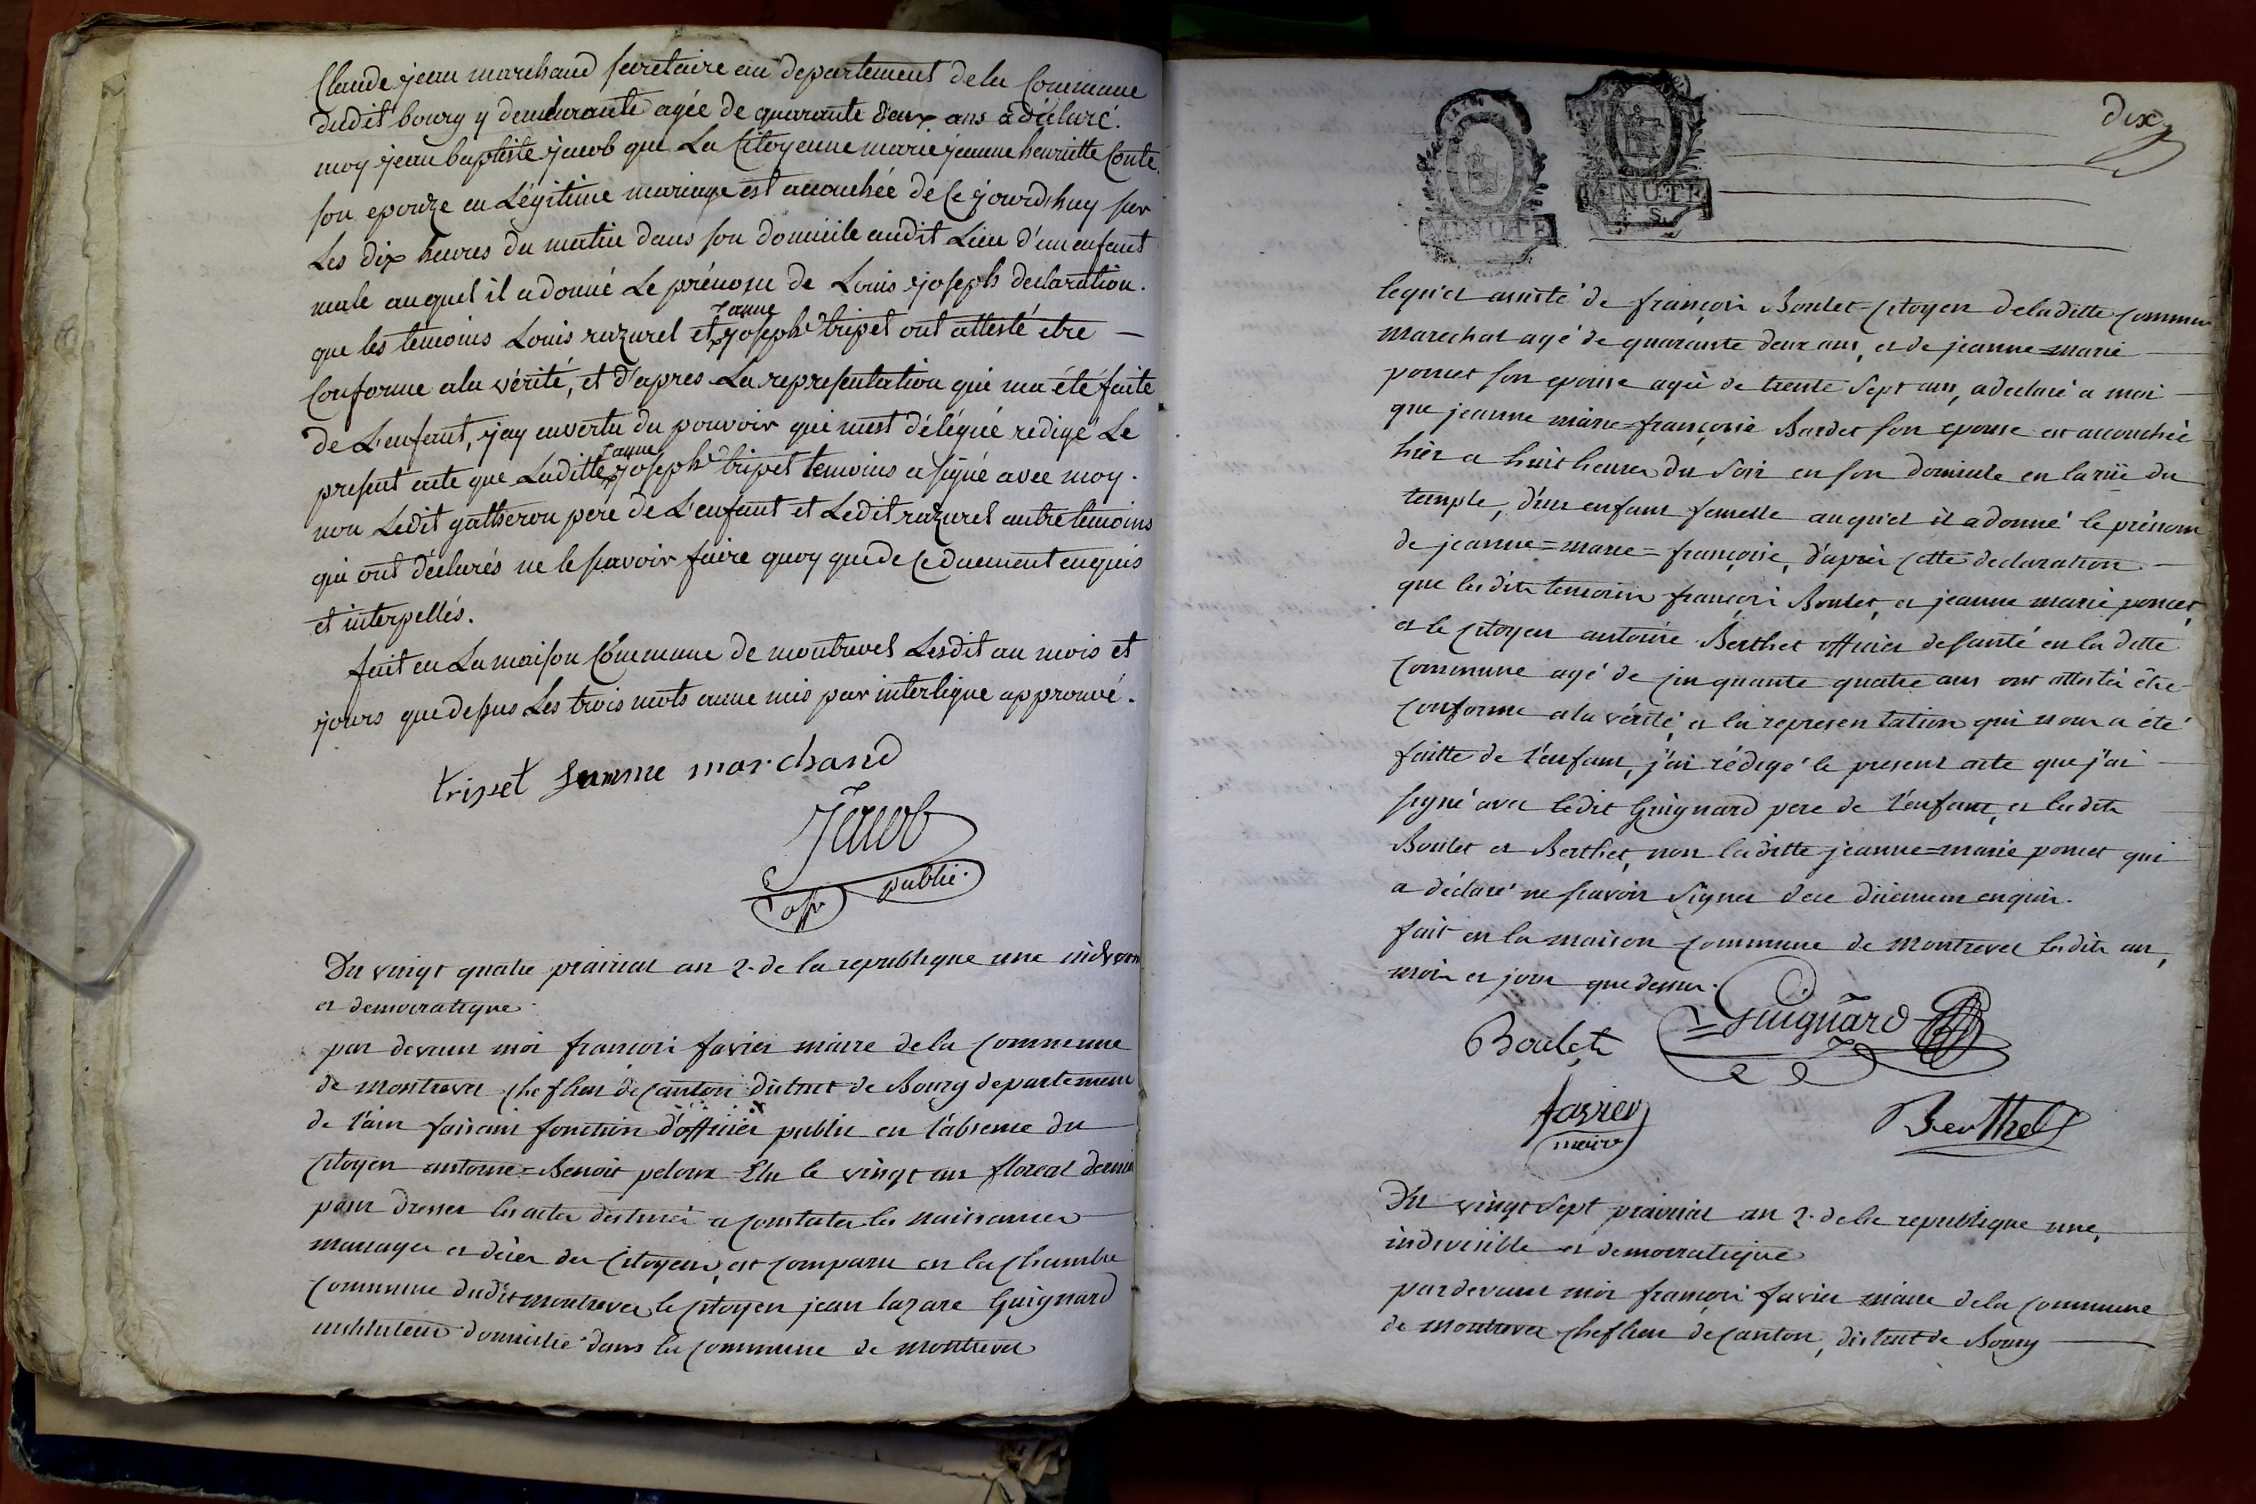 Claude jean marchand secretaire au departement dela Commune
dudit bourg y demeurante agée de quarante deux ans a déclaré.
moy jean baptiste jacob que La Citoyenne marie jeanne henriette Conte
son epouze en Légitime mariage est acouchée de Ce jourdhuy sur
Les dix heures du matin dans son domicile audit Lieu d'un enfant
male auquel il a donné Le prénom de Louis joseph declaration.
que les temoins Louis razurel et joseph anne tripet ont attesté etre
Conforme ala vérité, et d'apres La representation qui ma été faite
de L'enfant, j'ay envertu du pouvoir qui m'est délégué redigé Le
present acte que Laditte joseph anne tripet temoins a signé avec moy.
non Ledit gatheron pere de L'enfant et Ledit razurel autre temoins
qui ont déclarés ne le scavoir faire quoy que de Ce duement enquis
et interpellés.
fait en La maison Commune de montrevel Lesdit an mois et
jours que dessus Les trois mots anne mis par interligne approuvé.
tripet femme marchand
Jacob
off public.
Du vingt quatre prairial an 2. de la republique une indivis
et democratique
par devant moi françois favier maire dela commune
de montrevel chef lieu de canton district de Bourg departement
de l'ain faisant fonction d'officier public en l'absence du
citoyen antoine=Benoit peloux Elu le vingt un floreal dernier
pour dresser les actes destinés a constater les naissances
mariages et décès des Citoyens, est comparu en la chambre
commune dudit montrevel le citoyen jean lazare Guignard
instituteur domicilié dans la commune de montrevel
dix
MINUTE
MINUTE
4. S.
lequel assisté de françois Boulet citoyen deladitte commune
marechal agé de quarante deux ans, et de jeanne=marie
poncet son epouse agée de trente sept ans, a declaré a moi
que jeanne marie=françoise Bardet son epouse est accouchée
hier a huit heures du soir en son domicile en la rüe du
temple, d'un enfant femelle auquel il a donné le prénom
de jeanne=marie=françoise, d'après cette declaration
que lesdits temoins françois Boulet, et jeanne marie poncet,
et le citoyen antoine Berthet officier de santé en la ditte
commune agé de cinquante quatre ans ont attesté être
conforme ala vérité, et la representation qui nous a été
faitte de l'enfant, j'ai rédigé le present acte que j'ai
signé avec ledit Guignard pere de l'enfant, et lesdits
Boulet et Berthet, non laditte jeanne=marie poncet qui
a déclaré ne scavoir signer de ce düement enquis.
fait en la maison commune de montrevel lesdits an,
mois et jour que dessus.
Boulet Guignard
favier
maire
Berthet
Du vingt sept prairial an 2. dela republique une,
indivisible et democratique
pardevant moi françois favier maire dela commune
de montrevel chef lieu de canton, district de Bourg